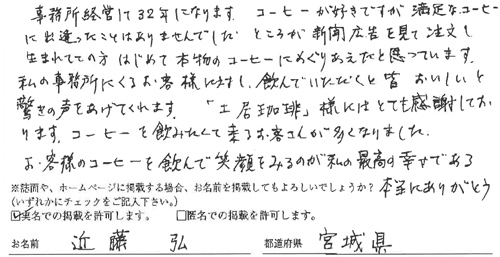 事務所経営して32年になります。コーヒーが好きですが満足なコーヒー
に出逢ったことはありませんでした。ところが新聞広告を見て注文し
生まれてこの方はじめて本物のコーヒーにめぐりあえたと思っています。
私の事務所にくるお客様に対し、飲んでいただくと皆おいしいと
驚きの声をあげてくれます。「土居珈琲」様にはとても感謝してお
ります。コーヒーを飲みたくて来るお客さんが多くなりました。
お客様のコーヒーを飲んで笑顔をみるのが私の最高の幸せである
本当にありがとう
※誌面や、ホームページに掲載する場合、お名前を掲載してもよろしいでしょうか？
(いずれかにチェックをご記入下さい。)
☑実名での掲載を許可します。 □匿名での掲載を許可します。
お名前 近藤 弘 都道府県 宮城県